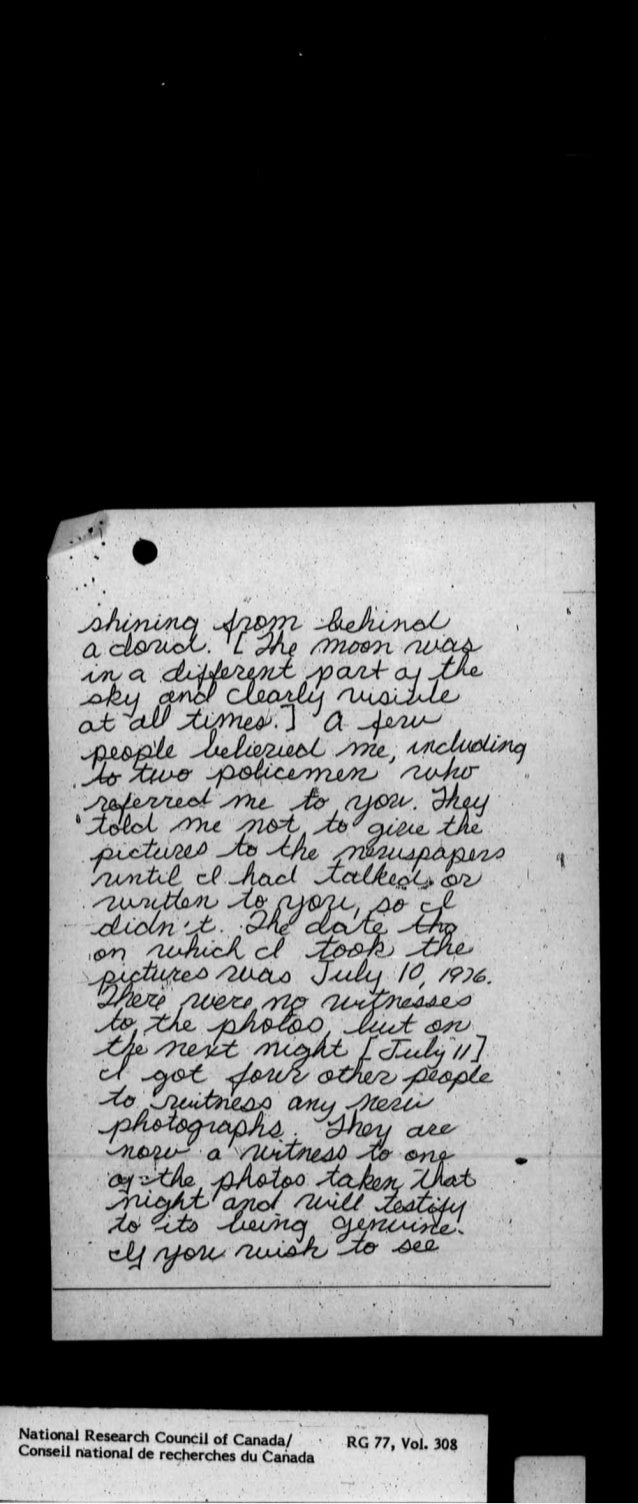 shining from behind
a cloud. [The moon was
in a different part of the
sky and clearly visible
at all times.] A few
people believed me, including
to two policemen who
referred me to you. They
told me not to give the
pictures to the newspapers
until I had talked or
written to you, so I
didn't. The date tha
on which I took the
pictures was July 10, 1976.
There were no witnesses
to the photos, but on
the next night [July 11]
I got four other people
to witness any new
photographs. They are
now a witness to one
of the photos taken that
night and will testify
to its being genuine.
If you wish to see
National Research Council of Canada/ RG 77, Vol. 308
Conseil national de recherches du Canada